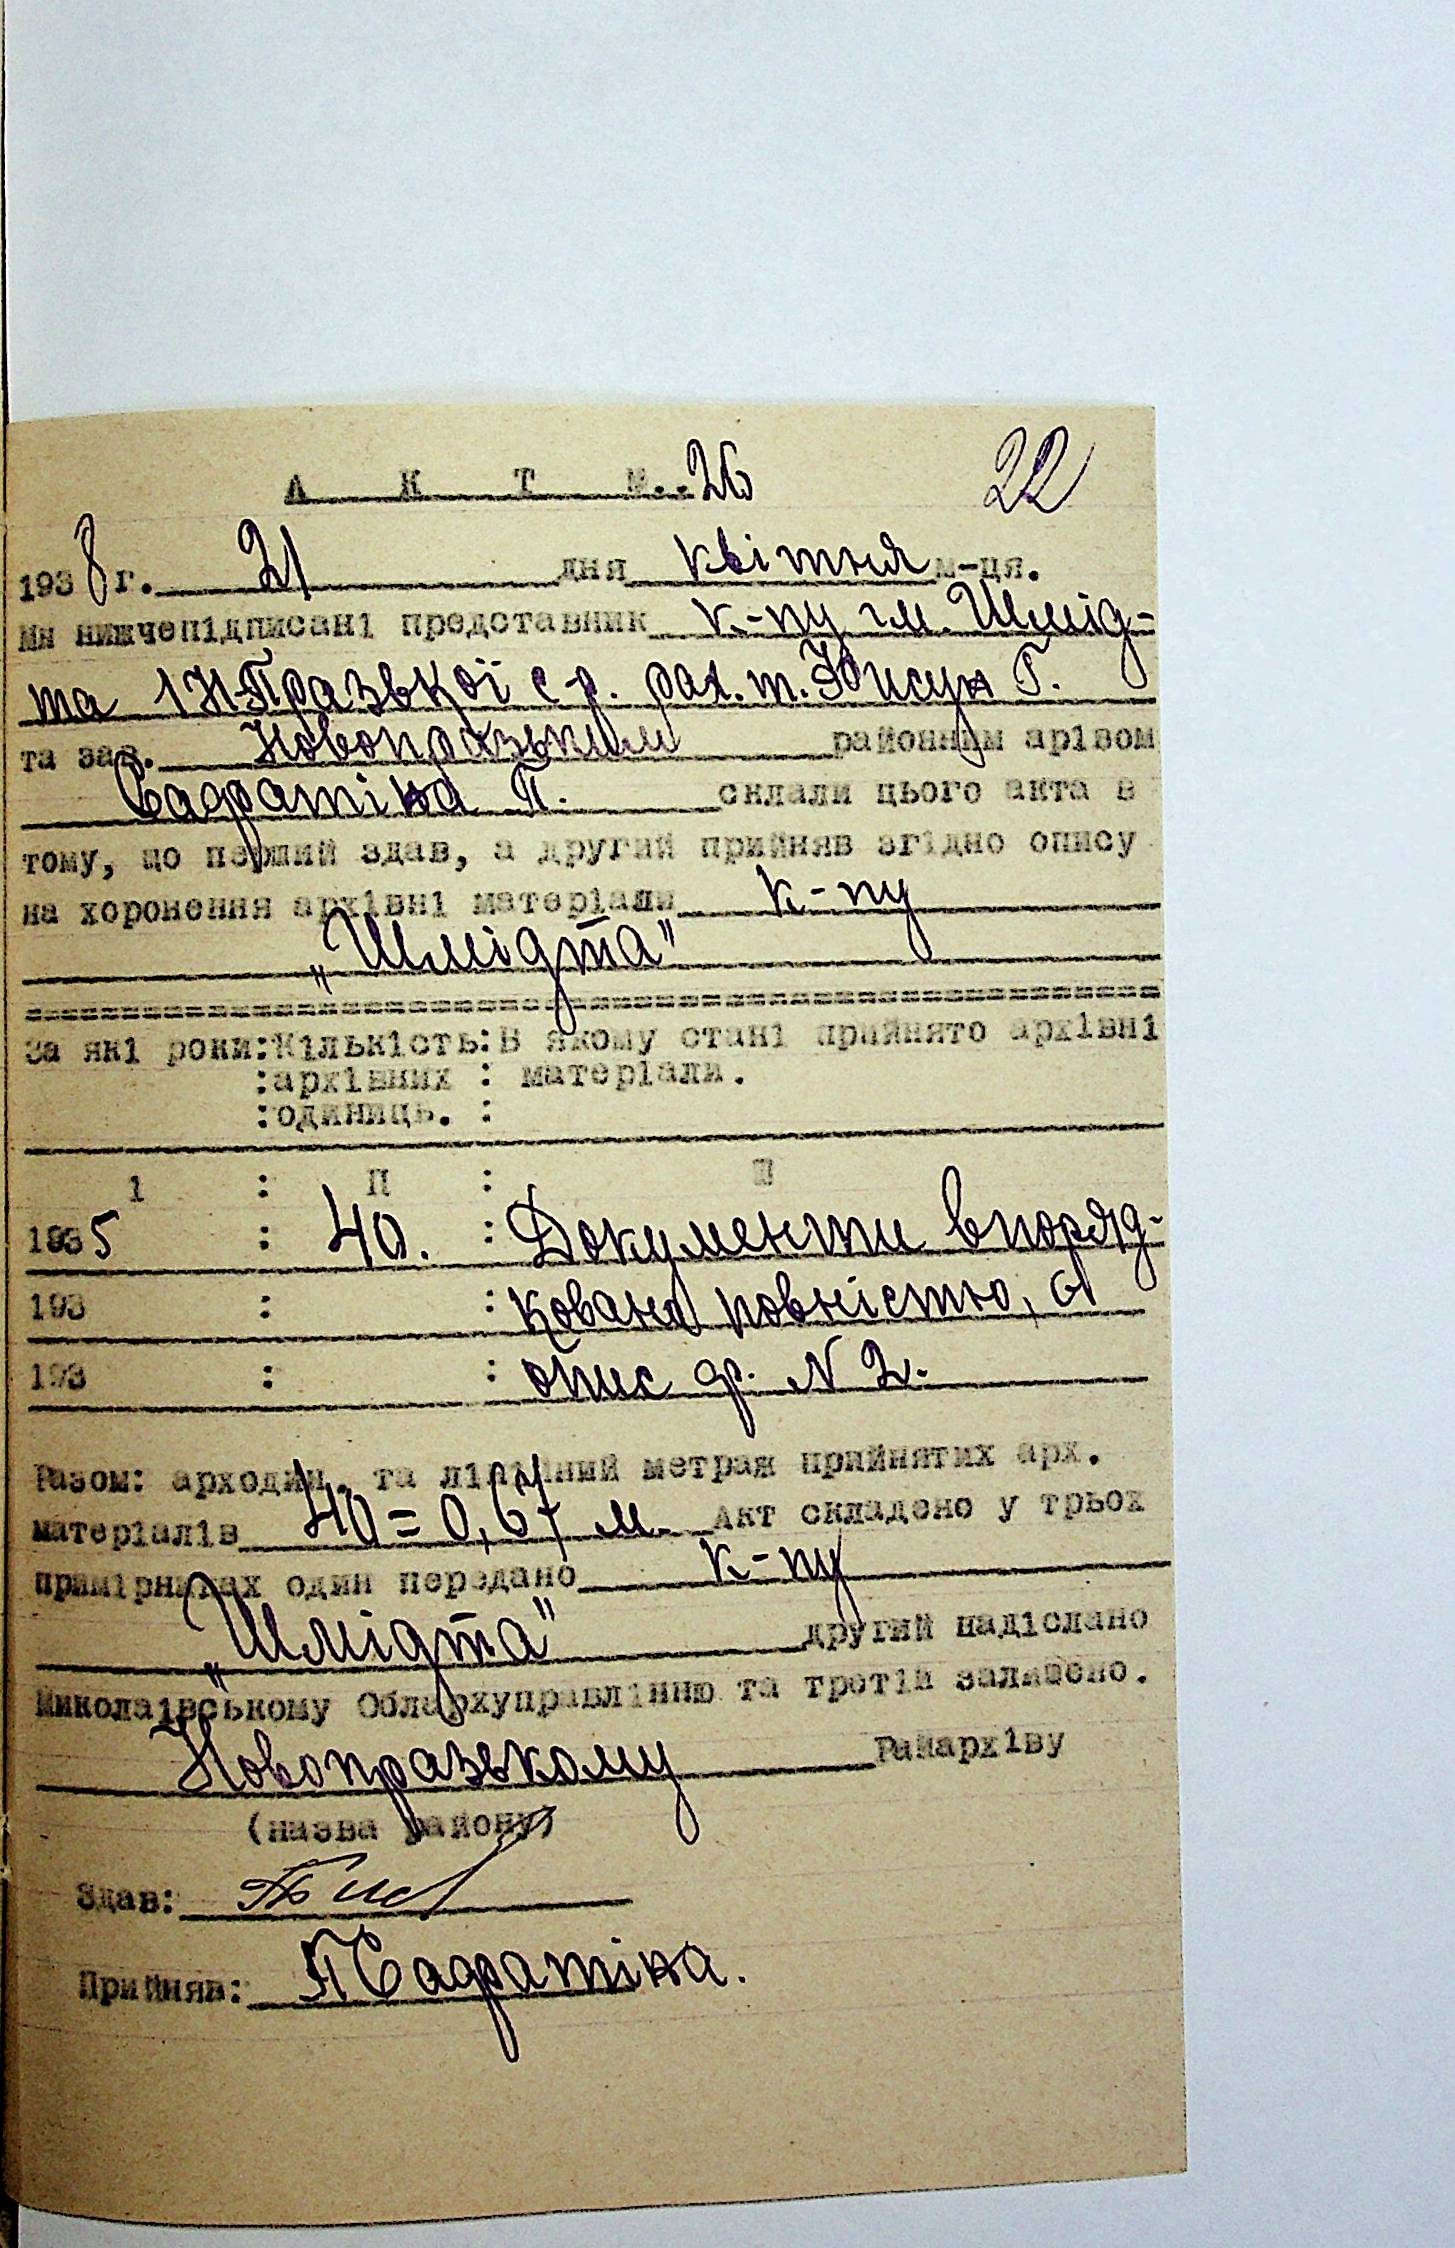 А К Т №. 26
22
1938 г. 21 дня квітня м-ця.
Ми нижчепідписані представник к-пу ім. Шмід-
та 1 Н-Празької с-р. рах. т. Г.
та зав. Новопразьким районним арівом
Садратіна П. склали цього акта в
тому, що перший здав, а другий прийняв згідно опису
на хоронення архівні матеріали к-пу
„Шмідта"
За які роки:Кількість:В якому стані прийнято архівні
:архівних : матеріали.
:одиниць. :
1 : П : Ш
1935 : 40. : Документи впоряд-
193 : : ковано повністю, є
193 : : опис ф. N 2.
Разом: арходин. та лінійний метраж прийнятих арх.
матеріалів 40 = 0,67 м. Акт складено у трьох
примірниках один передано к-пу
„Шмідта" другий надіслано
Миколаівському Облархуправлінню та третій залишено.
Новопразькому Райархіву
(назва району)
Здав:
Прийняв: П Садратіна.